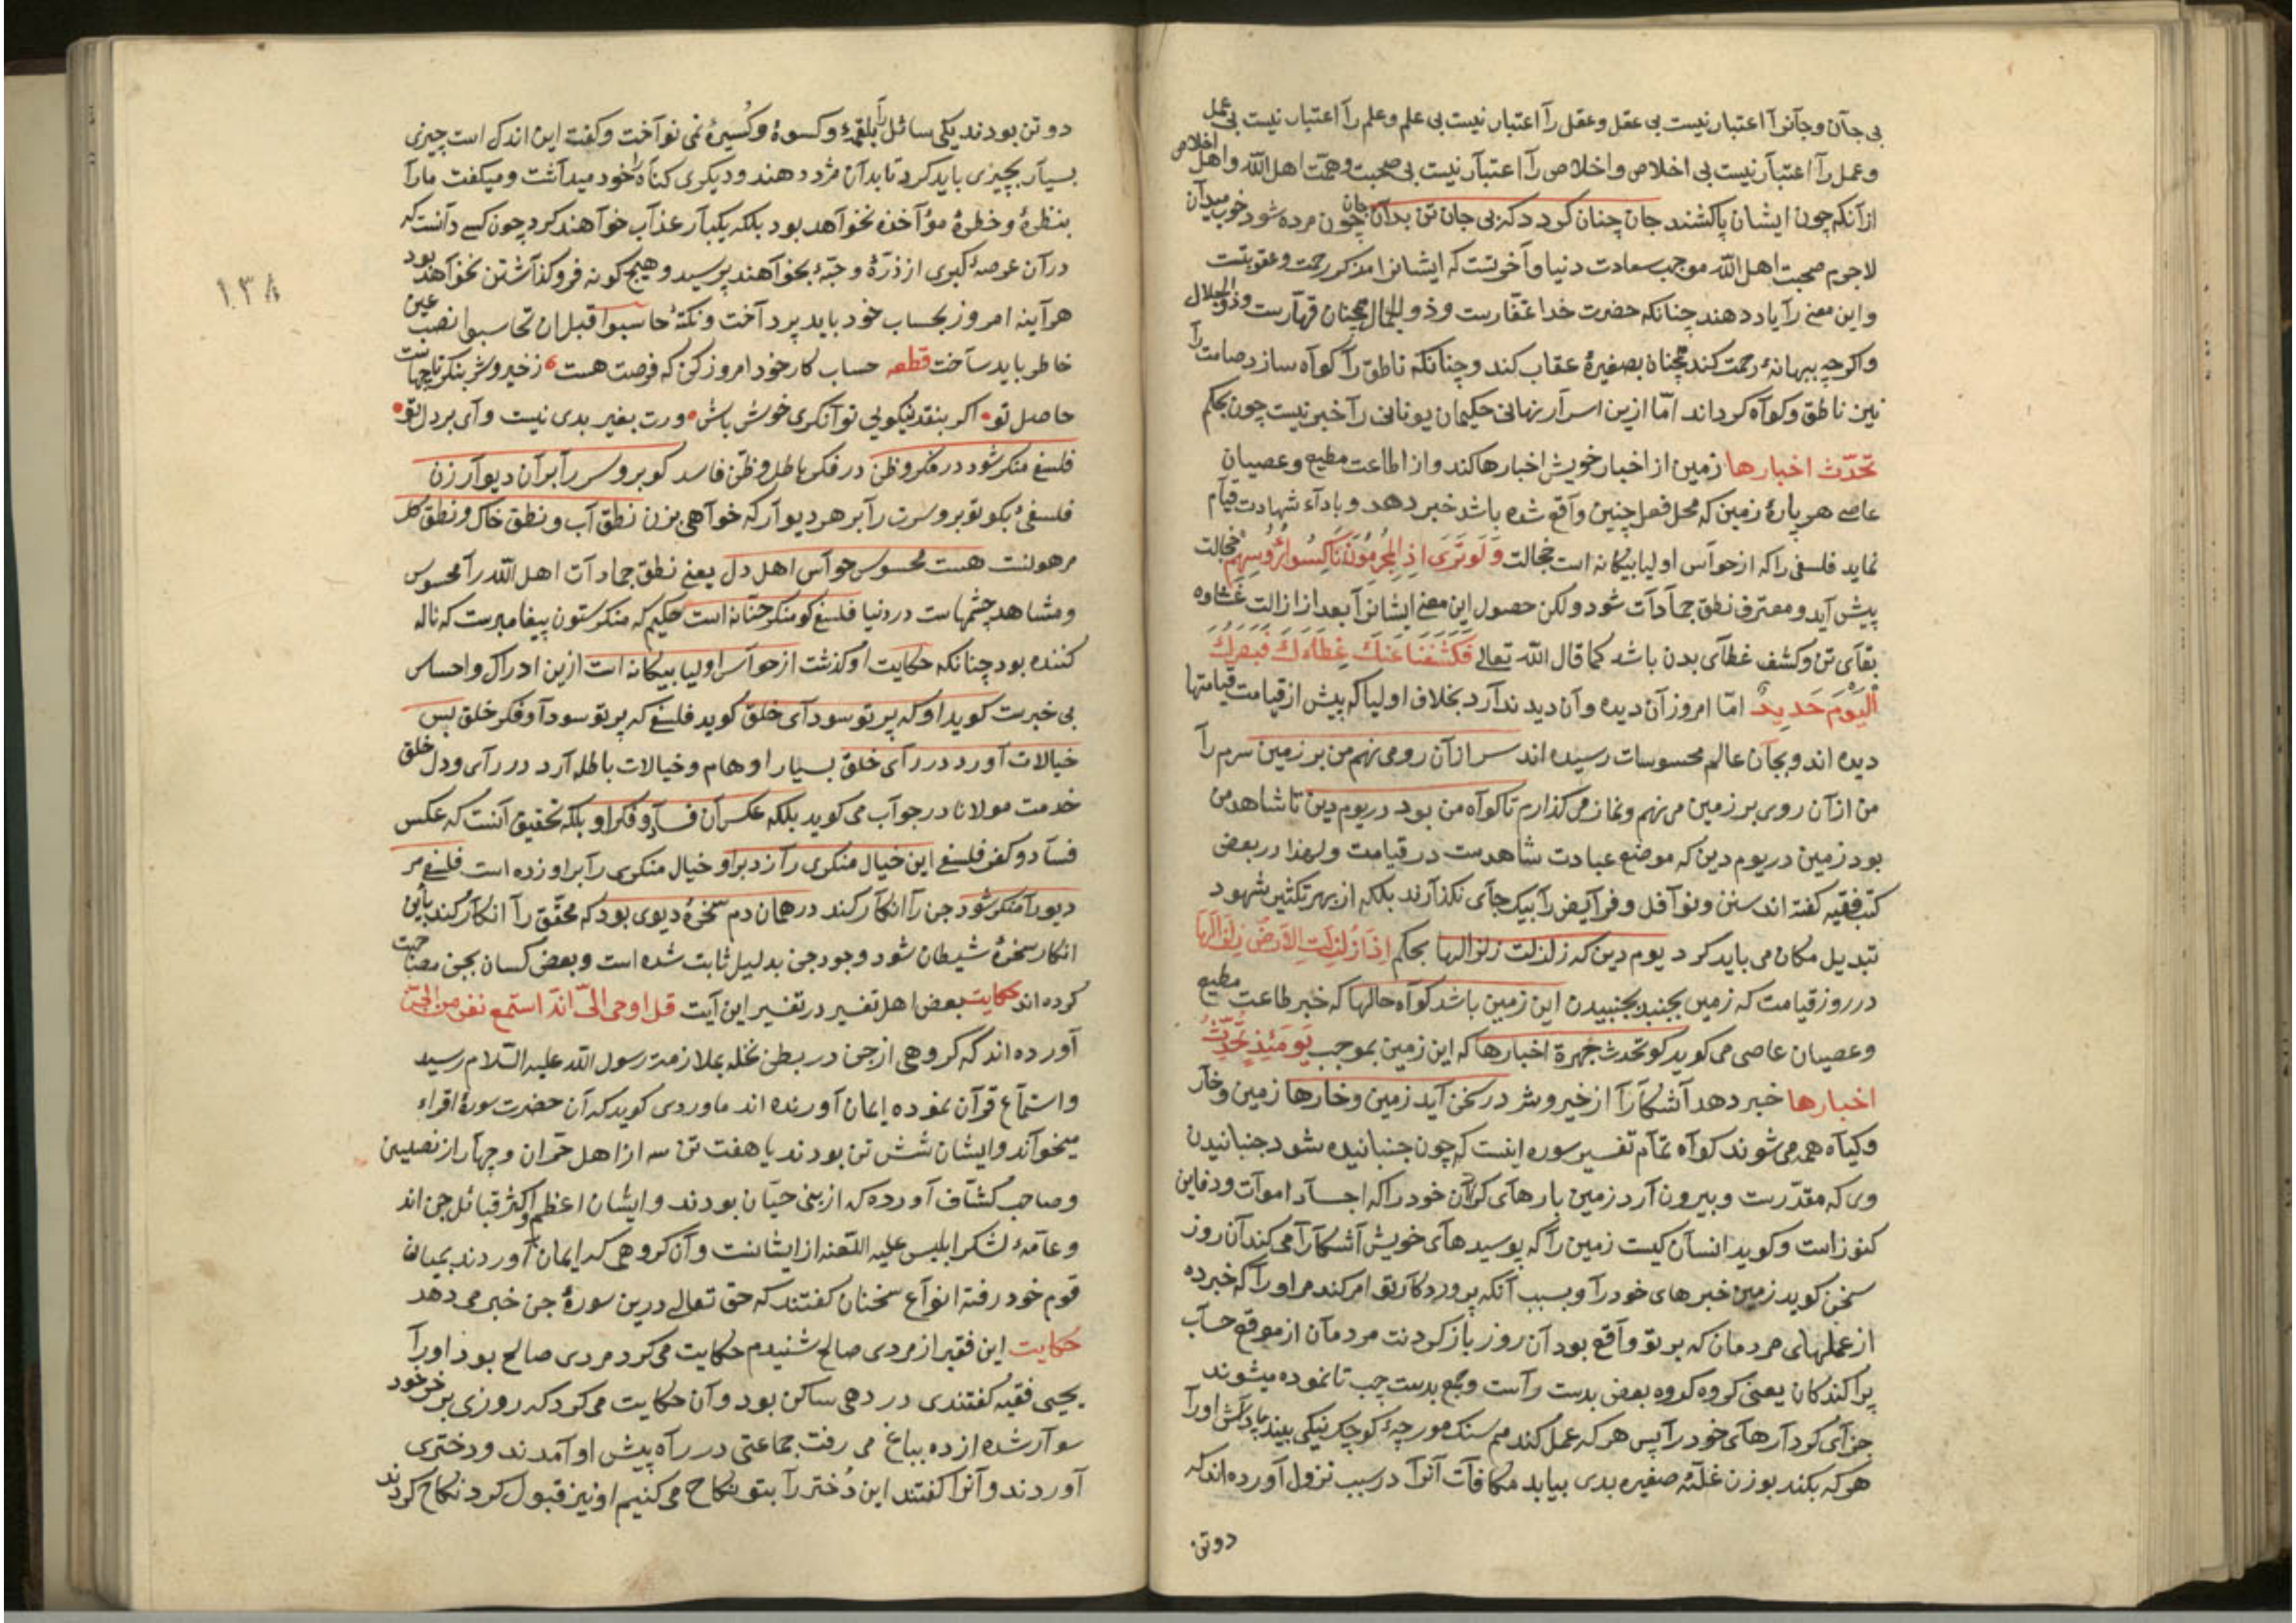 بی جان وجانرا اعتبار نیست بی عقل وعقل را اعتبار نیست بی علم وعلم را اعتبار نیست بی عمل
وعمل را اعتبار نیست بی اخلاص واخلاص را اعتبار نیست بی صحبت وهمّت اهل الله واهل اخلاص
از آنکه چون ایشان پاکشند جان چنان کردد که بی جان تن بدان جان چون مرده شود خوب میدان
لاجرم صحبت اهل الله موجب سعادت دنیا وآخرتست که ایشانرا مذکر رحمت وعقوبتست
واین معنی را یاد دهند چنانکه حضرت خدا غفّارست وذو الجمال همچنان قهّارست وذو الجلال
واکرچه ببهانهٔ رحمت کند همچنان بصغیرهٔ عقاب کند وچنانکه ناطق را کواه سازد صامت را
نیز ناطق وکواه کرداند امّا ازین اسرار نهانی حکیمان یونانی را خبر نیست چون بحکم
تحدّث اخبارها زمین از اخبار خویش اخبارها کند واز اطاعت مطیع وعصیان
عاصی هر پارهٔ زمین که محل فعل چنین واقع شده باشد خبر دهد وباداء شهادت قیام
نماید فلسفی را که از حواس اولیا بیکانه است خجالت وَلَوتَرَی اِذِ المُجرِمُونَ نَاکِسُوا رُؤُسِهِم خجالت
پیش آید ومعترف نطق جمادات شود ولکن حصول این معنی ایشانرا بعد از ازالت غشاوه
بقای تن وکشف غطای بدن باشد کما قال الله تعالی فَکَشَفنَا عَنکَ غِطَآءَکَ فَبَصَرُکَ
الیَومَ حَدِیدٌ امّا امروز آن دیده وآن دید ندارد بخلاف اولیا که پیش از قیامت قیامتها
دیده اند وبجان عالم محسوسات رسیده اند سر ازان رو می نهم من بر زمین سرم را
من از آن روی بر زمین می نهم ونماز می کذارم تا کواه من بود در یوم دین تا شاهد من
بود زمین در یوم دین که موضع عبادت شاهدست در قیامت ولهذا در بعض
کتب فقیه کفته اند سنن ونوافل وفرایض را بیک جای نکذارند بلکه از بهر تکثیر شهود
تبدیل مکان می باید کرد یوم دین که زلزلت زلزالها بحکم اِذَا زُلزِلَتِ الاَرضُ زِلزَالَهَا
در روز قیامت که زمین بجنبد بجنبیدن این زمین باشد کواه حالها که خبر طاعت مطیع
وعصیان عاصی می کوید کو تحدث جهرة اخبارها که این زمین بموجب یَومَئِذٍ تُحَدِّثُ
اخبارها خبر دهد آشکارا از خیر وشر در سخن آید زمین وخارها زمین وخار
وکیاه همه می شوند کواه تمام تفسیر سوره اینست که چون جنبانیده شود جنبانیدن
وی که مقدّرست وبیرون آرد زمین بارهای کران خود را که اجساد اموات ودفاین
کنوزاست وکوید انسان کیست زمین را که پوسیدهای خویش آشکارا می کند آن روز
سخن کوید زمین خبرهای خود را وبسبب آنکه پروردکار تو امر کند مر او را که خبر ده
از عملهای مردمان که بر تو واقع بود آن روز باز کردنت مردمان از موقع حساب
پراکندکان یعنی کروه کروه بعض بدست راست وجمع بدست چپ تا نموده میشوند
جزای کردارهای خود را پس هر که عمل کند هم سنک مورچهٔ کوچک نیکی بیند پاداش او را
هر که بکند بوزن غلّهٔ صغیره بدی بیابد مکافات آنرا در سبب نزول آورده اند که
دوتن
دوتن بودند یکی سائل را بلقمهٔ وکسوهٔ وکُسیرهٔ نمی نواخت وکفته این اندک است چیزی
بسیار بچیزی باید کرد تا بدان مزد دهند ودیکری کناه را خود میداشت ومیکفت ما را
بنظرهٔ وخطرهٔ مؤاخذه نخواهد بود بلکه یکبار عذاب خواهند کرد چون کسی دانست که
در آن عرصهٔ کبری از ذرّهٔ وحبّهٔ بخواهند پرسید وهیچ کونه فروکذاشتن نخواهد بود
هر آینه امروز بحساب خود باید پرداخت ونکتهٔ حاسبوا قبل ان تحاسبوا نصب عین
خاطر باید ساخت قطعه حساب کار خود امروز کن که فرصت هست ز خیر وشر بنکر تا چهاست
حاصل تو اکر بنقد نیکویی توانکری خوش باش ورت بغیر بدی نیست وای بر دل تو
فلسفی منکر شود در فکر وظن در فکر باطل وظنّ فاسد کو برو سر را بران دیوار زن
فلسفیٔ بکو تو برو سرت را بر هر دیوار که خواهی بزن نطق آب ونطق خاک ونطق کل
مرهونت هست محسوس حواس اهل دل یعنی نطق جمادات اهل الله را محسوس
ومشاهد چشمهاست در دنیا فلسفی کو منکر حنّانه است حکیم که منکر ستون پیغامبرست که ناله
کننده بود چنانکه حکایت او کذشت از حواس اولیا بیکانه است ازین ادراک واحساس
بی خبرست کوید او که پرتو سودای خلق کوید فلسفی که پرتو سودا وفکر خلق بس
خیالات آورد در رای خلق بسیار اوهام وخیالات باطله آرد در رای ودل خلق
خدمت مولانا در جواب می کوید بلکه عکس آن فساد وفکر او بلکه تحقیق آنست که عکس
فساد وکفر فلسفی این خیال منکری را زد بر او خیال منکری را بر او زده است فلسفی مر
دیو را منکر شود جن را انکار کند در همان دم سخرهٔ دیوی بود که محقّق را انکار کند باین
انکار سخرهٔ شیطان شود وجود جن بدلیل ثابت شده است وبعض کسان بجن مصاحبت
کرده اند حکایت بعض اهل تفسیر در تفسیر این آیت قل اوحی الیّ انّه استمع نفر من الجنّ
آورده اند که کروهی از جن در بطن نخله بملازمت رسول الله علیه السّلام رسید
واستماع قرآن نموده ایمان آورنده اند ماوردی کوید که آن حضرت سورهٔ اقراء
میخواند وایشان شش تن بودند یا هفت تن سه از اهل حرّان وچهار از نصیبین
وصاحب کشّاف آورده که از بنی حیّان بودند وایشان اعظم واکثر قبائل جن اند
وعامّهٔ لشکر ابلیس علیه اللّعنه از ایشانست وآن کروهی که ایمان آوردند بمیان
قوم خود رفته انواع سخنان کفتند که حق تعالی درین سورهٔ جن خبر می دهد
حکایت این فقیر از مردی صالح شنیدم حکایت می کرد مردی صالح بود او را
یحیی فقیه کفتندی در دهی ساکن بود وآن حکایت می کرد که روزی بر خر خود
سوار شده از ده بباغ می رفت جماعتی در راه پیش او آمدند ودختری
آوردند وآنرا کفتند این دُختر را بتو نکاح می کنیم او نیز قبول کرد نکاح کردند
١٣٨